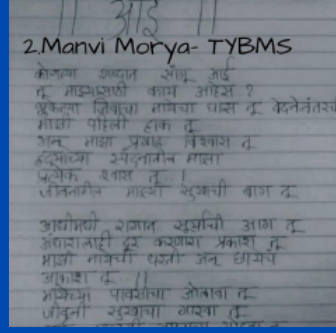 || आई ||
2.Manvi Morya- TYBMS
कोणत्या शब्दात सांगू आई
तू माझ्यासाठी काय आहेस ?
भुकेल्या जिवाचा मायेचा घास तू वेदनेनंतरची
माझी पहिली हाक तू
अन् माझा प्रगाढ विश्वास तू
हृदयाच्या स्पंदनातील माझा
प्रत्येक श्वास तू..!
जीवनातील माझ्या सुखाची बाग तू
सूर्याची आग तू
अंधारालाही दूर करणारा प्रकाश तू
माझी मायेची धरती अन् छायेचं
आकाश तू..!!
मायेच्या पावसाचा ओलावा तू
जीवनी सुखाचा गारवा तू